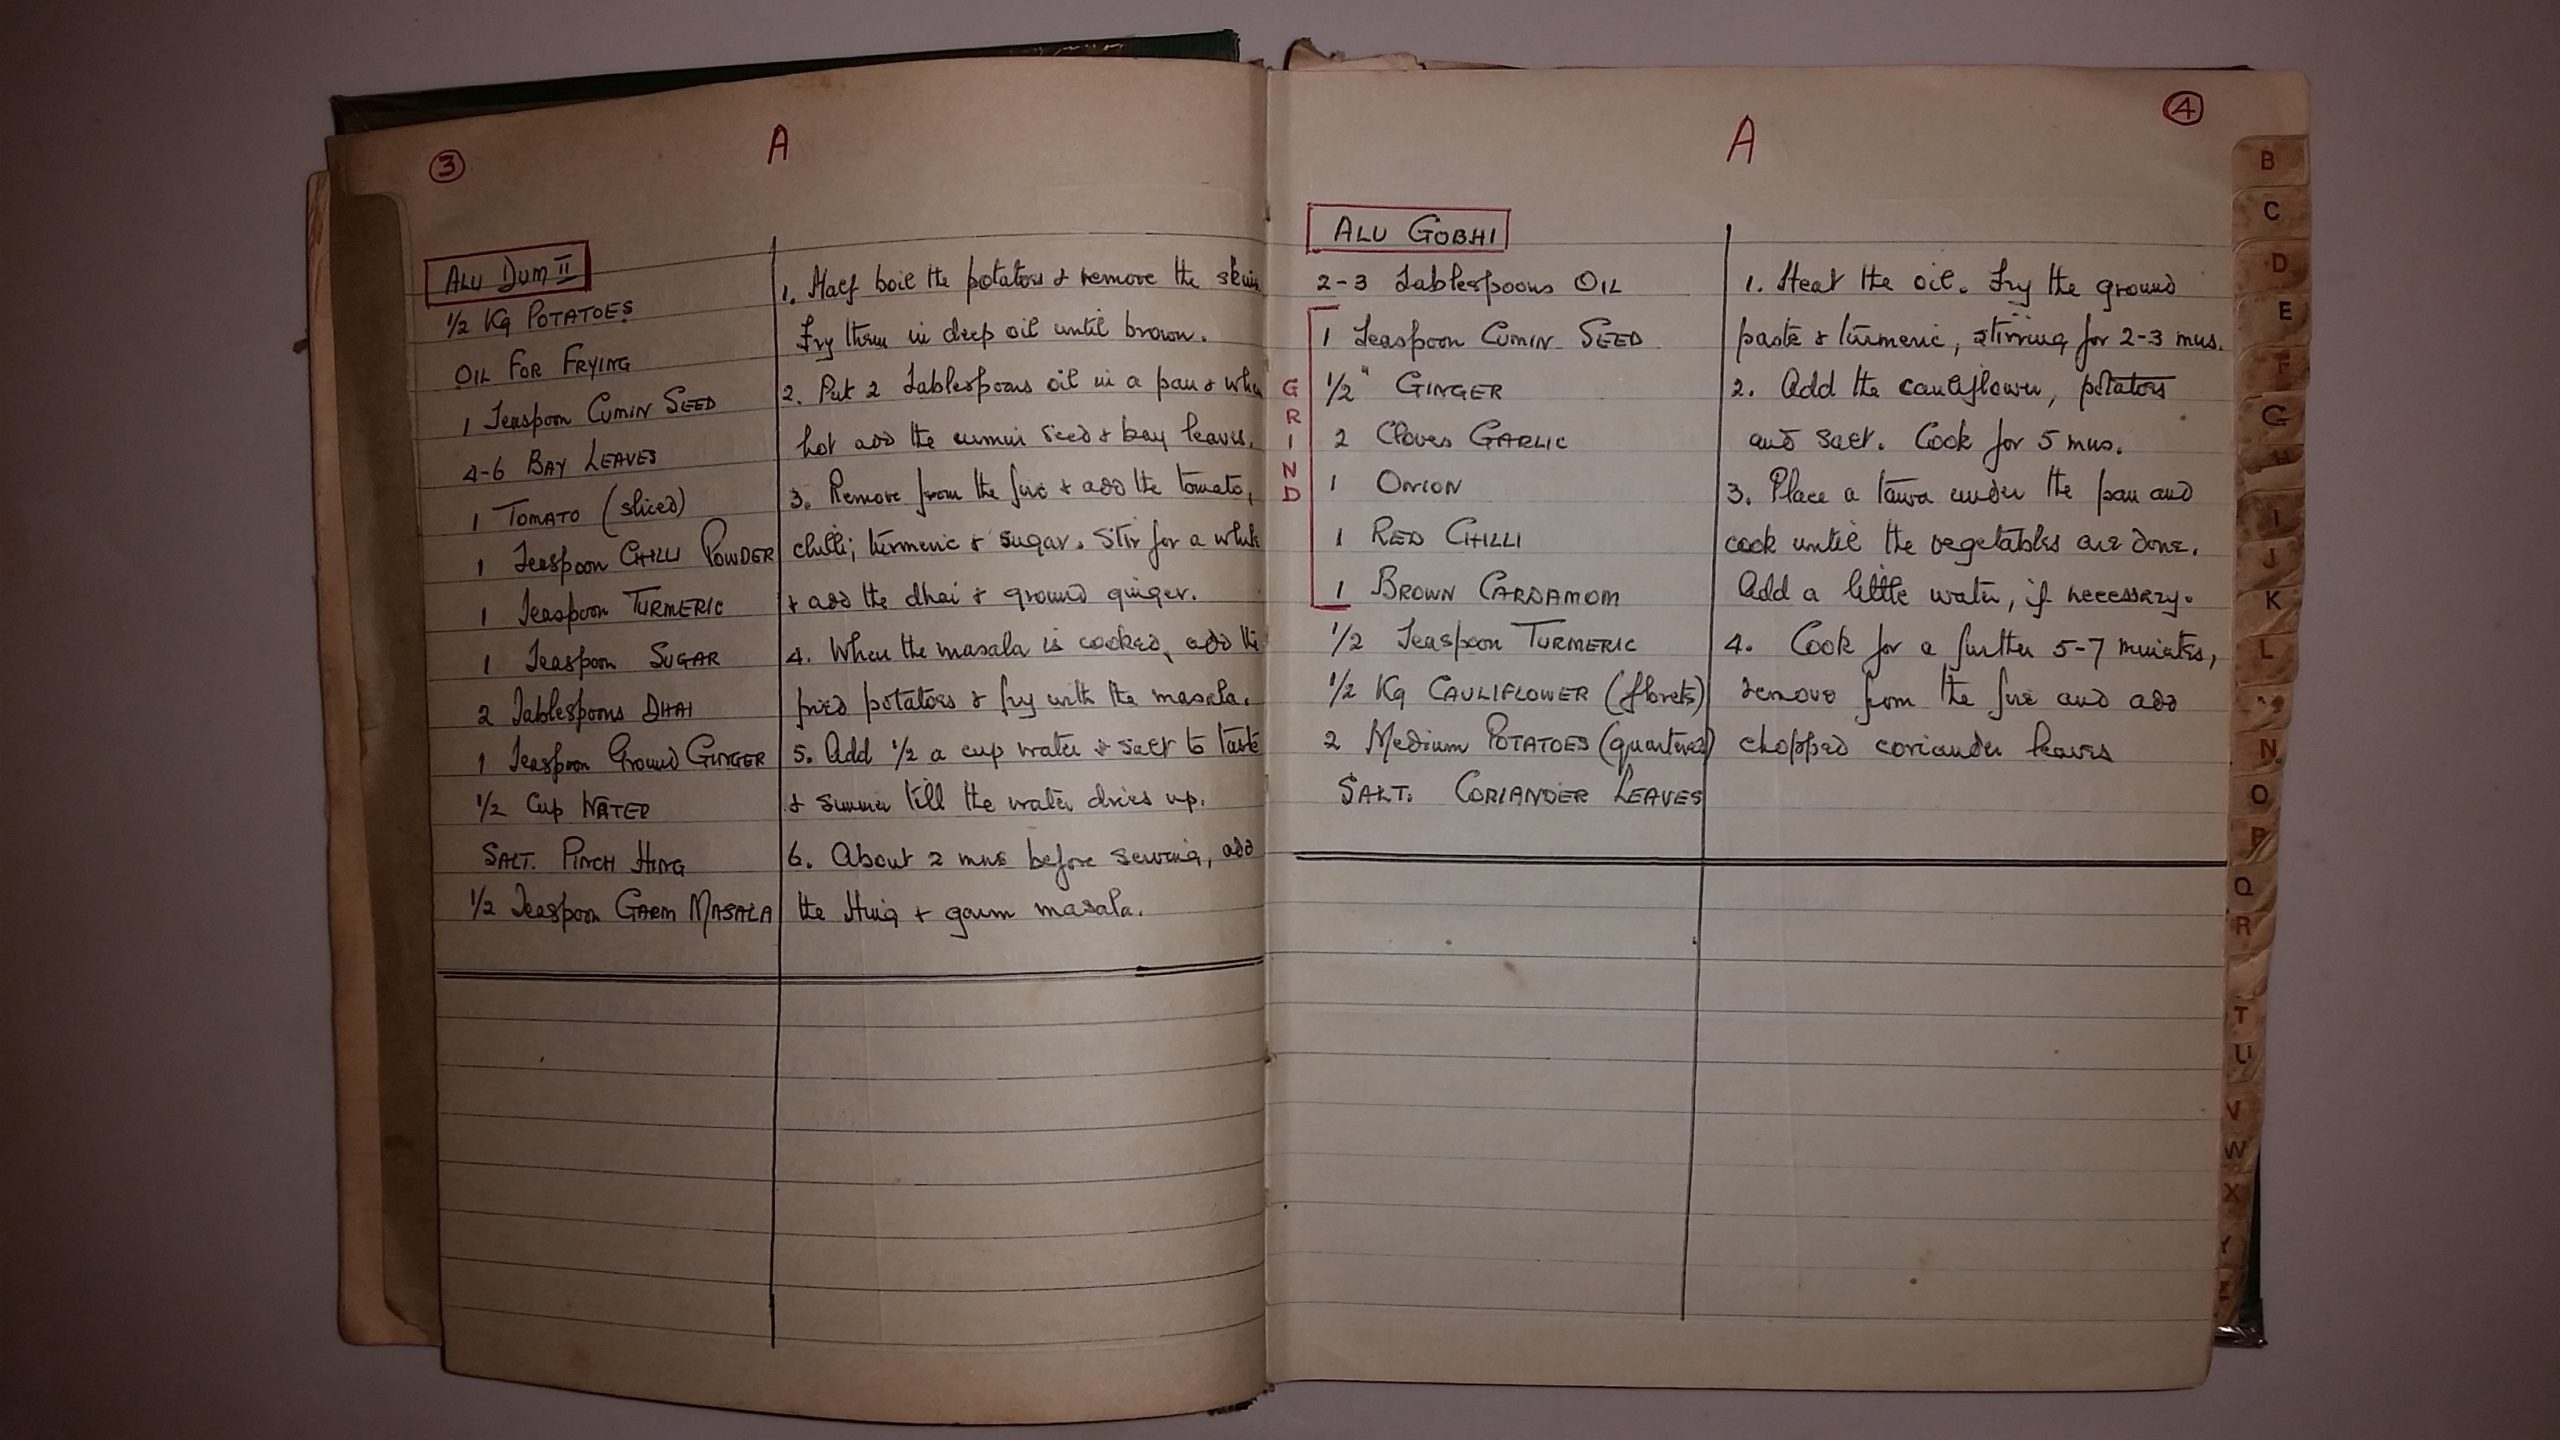 3
A
ALU DUM II
1/2 Kg POTATOES
OIL FOR FRYING
1 Teaspoon CUMIN SEED
4-6 BAY LEAVES
1 TOMATO (sliced)
1 Teaspoon CHILLI POWDER
1 Teaspoon TURMERIC
1 Teaspoon SUGAR
2 Tablespoons DHAI
1 Teaspoon Ground GINGER
1/2 Cup WATER
SALT. PINCH HING
1/2 Teaspoon GARM MASALA
1. Half boil the potatoes & remove the skin.
Fry them in deep oil until brown.
2. Put 2 Tablespoons oil in a pan & when
hot add the cumin seed & bay leaves.
3. Remove from the fire & add the tomato,
chilli; turmeric & sugar. Stir for a while
& add the dhai & ground ginger.
4. When the masala is cooked, add the
fried potatoes & fry with the masala.
5. Add 1/2 a cup water & salt to taste
& simmer till the water dries up.
6. About 2 mns before serving, add
the Hing & garm masala.
4
A
ALU GOBHI
2-3 Tablespoons OIL
GRIND
1 Teaspoon CUMIN SEED
1/2" GINGER
2 Cloves GARLIC
1 ONION
1 RED CHILLI
1 BROWN CARDAMOM
1/2 Teaspoon TURMERIC
1/2 Kg CAULIFLOWER (florets)
2 Medium POTATOES (quartered)
SALT. CORIANDER LEAVES
1. Heat the oil. Fry the ground
paste & turmeric, stirring for 2-3 mns.
2. Add the cauliflower, potatoes
and salt. Cook for 5 mns.
3. Place a tawa under the pan and
cook until the vegetables are done.
Add a little water, if necessary.
4. Cook for a further 5-7 minutes,
remove from the fire and add
chopped coriander leaves
B
C
D
E
F
G
H
I
J
K
L
N
O
P
Q
R
T
U
V
W
X
Y